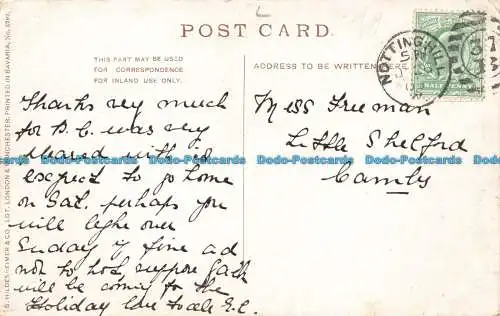 POST CARD.
THIS PART MAY BE USED
FOR CORRESPONDENCE
FOR INLAND USE ONLY.
ADDRESS TO BE WRITTEN HERE.
NOTTING HILL
HALFPENNY
S. HILDESHEIMER & CO. LDT. LONDON & MANCHESTER. PRINTED IN BAVARIA, No.
Thanks very much
for P.C. was very
pleased with it
expect to go home
on Sat. perhaps you
will over
Sunday if fine ad
not to hot, suppose
will be coming for the
Holiday love to all
Miss Freeman
Little Shelford
Cambs
Dodo-Postcards Dodo-Postcards Dodo-Postcards Dodo-Postcards